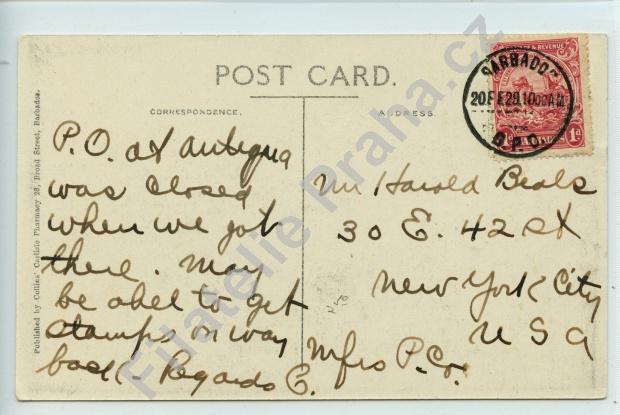 POST CARD.
CORRESPONDENCE.
ADDRESS.
P.O. at Antigua
was closed
when we got
there. May
be abel to get
stamps on way
back - Regards E.
Mr Harold Beals
30 E. 42 st
New York City
U S A
Mfrs P. Co.
BARBADOS
20 FE 29 10 00 AM
G.P.O.
& REVENUE
1d
Published by Collins' Carlisle Pharmacy 28, Broad Street, Barbados.
Filatelie Praha.cz